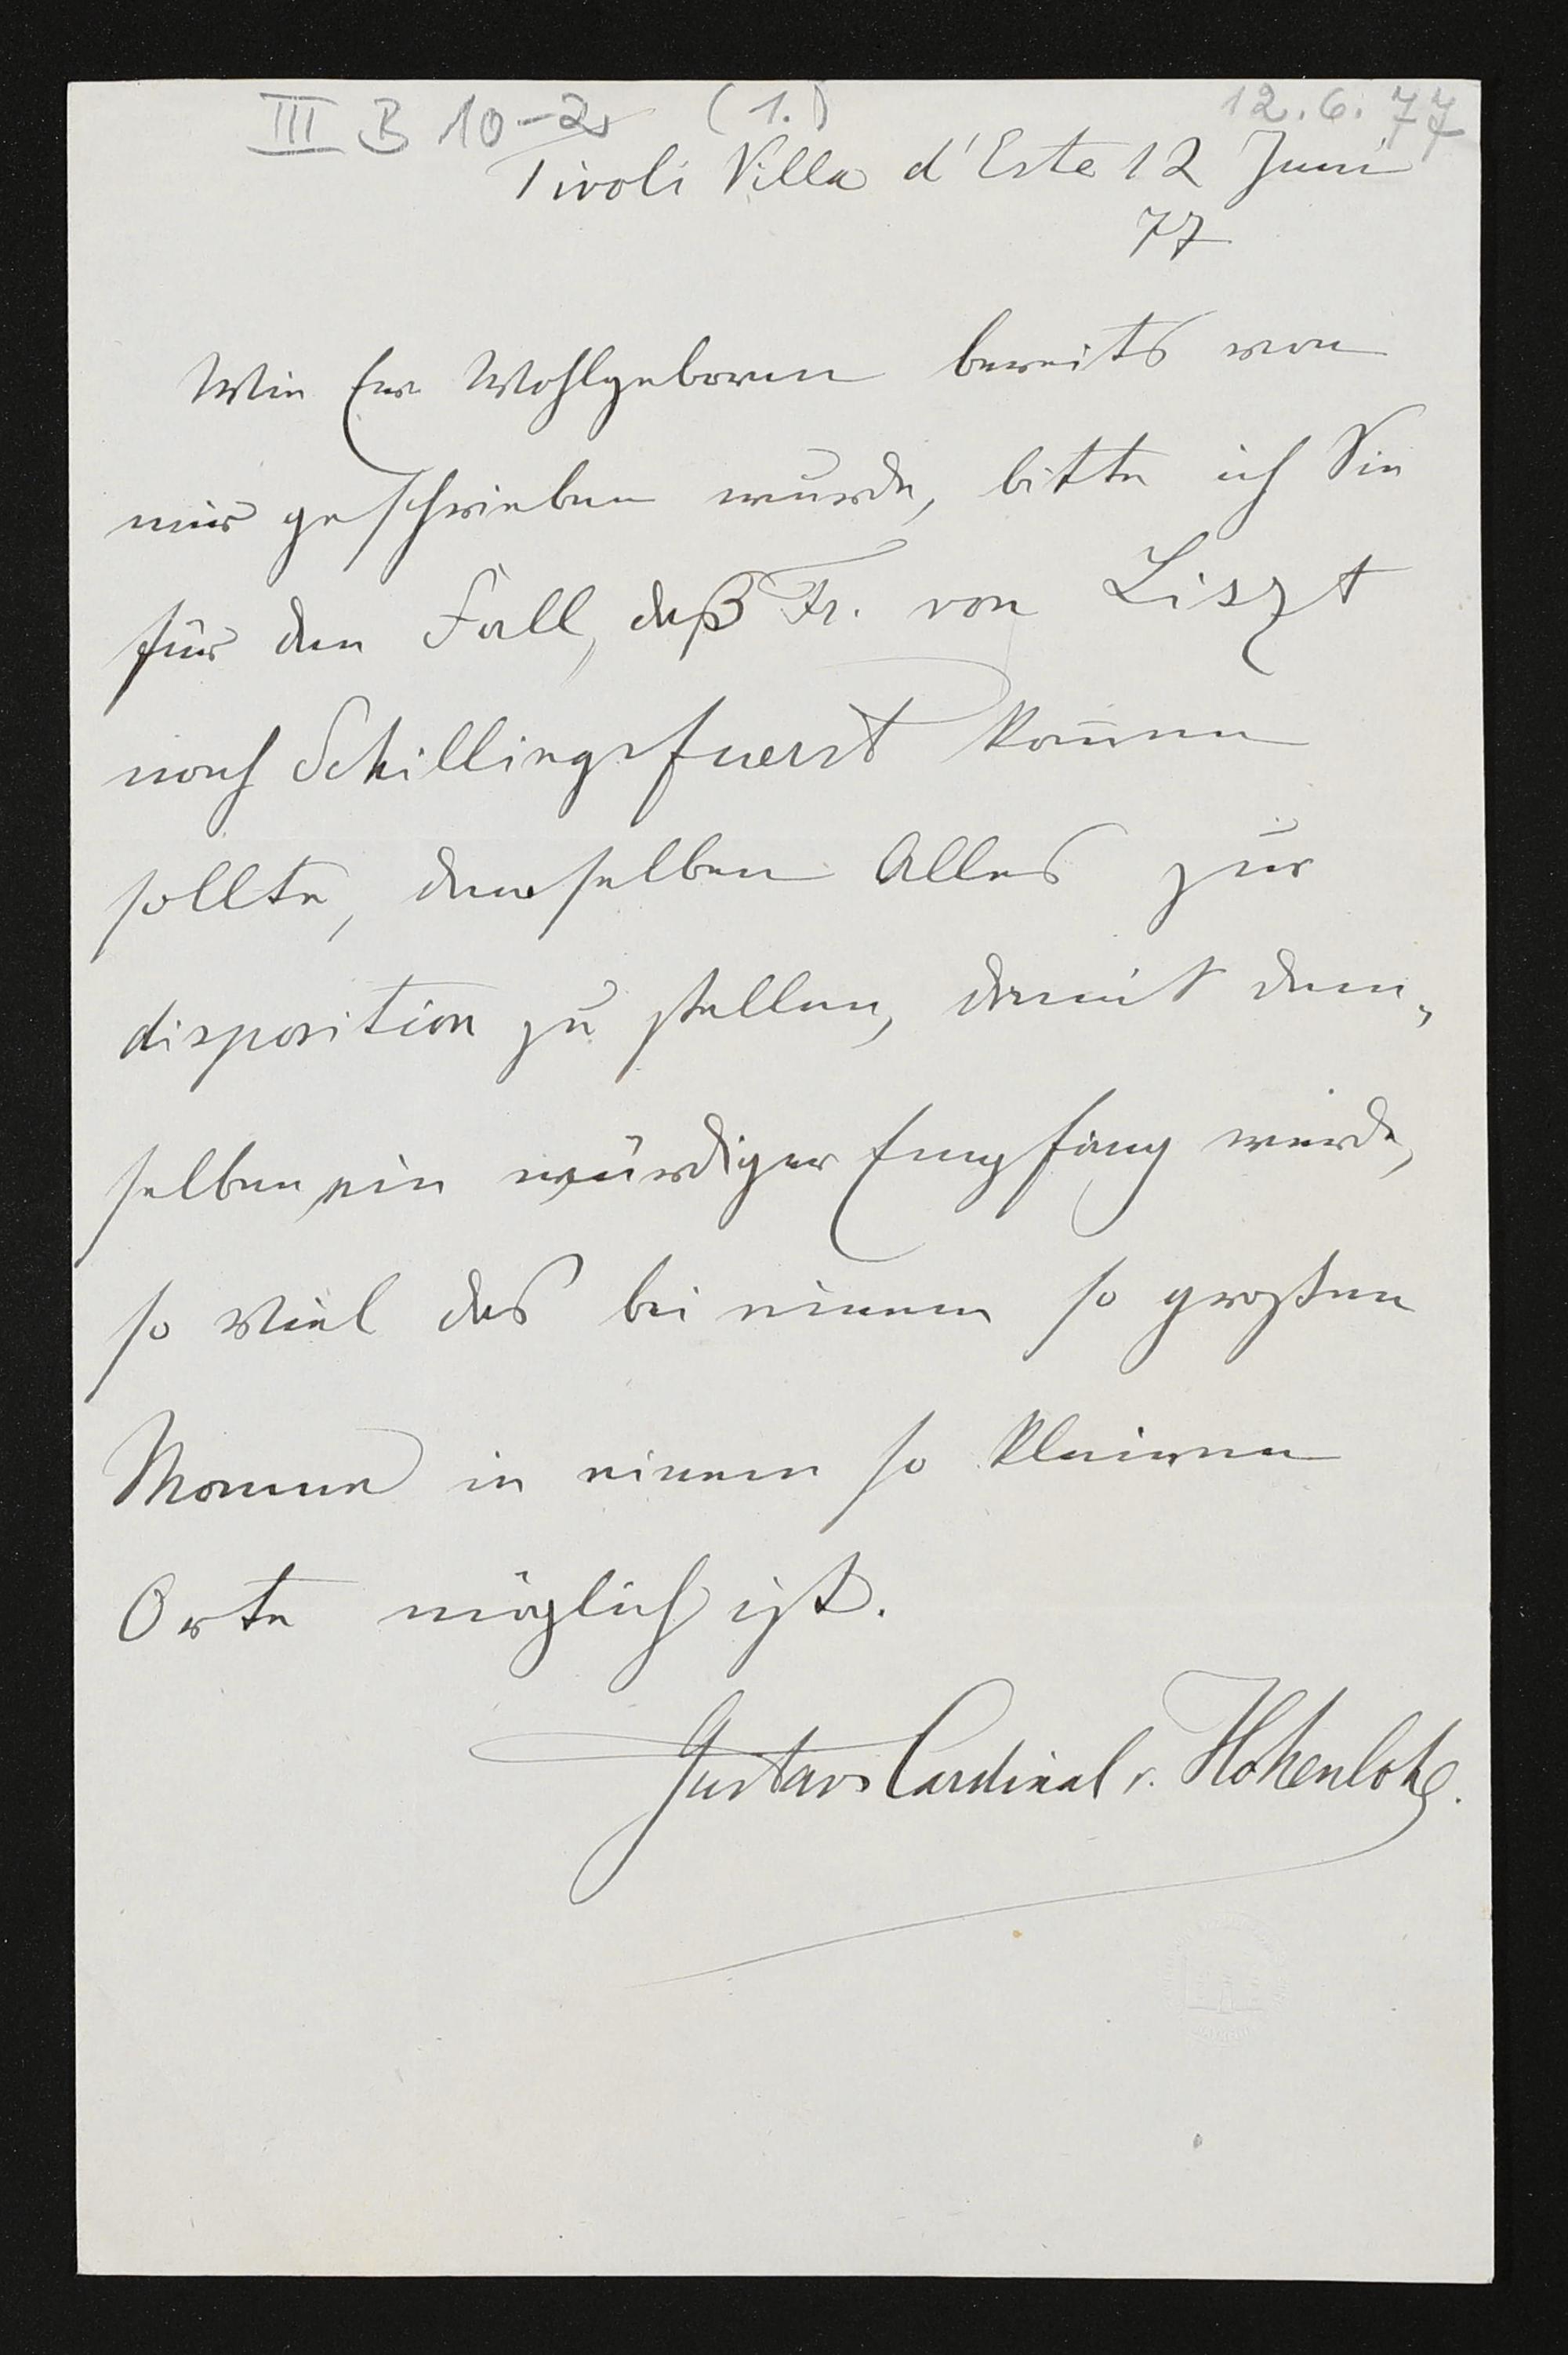 III B 10-2 (1.) 12.6.77
Tivoli Villa d'Este 12 Juni
77
Wie Ew Wohlgeboren bereits von
mir geschrieben wurde, bitte ich Sie
für den Fall, daß Fr. von Liszt
nach Schillingsfuerst kom̅en
sollte, demselben Alles zur
disposition zu stellen, damit dem„
selben ein würdiger Empfang werde,
so viel das bei einem so großen
Manne in einem so kleinen
Orte möglich ist.
Gustav Cardinal v. Hohenlohe.